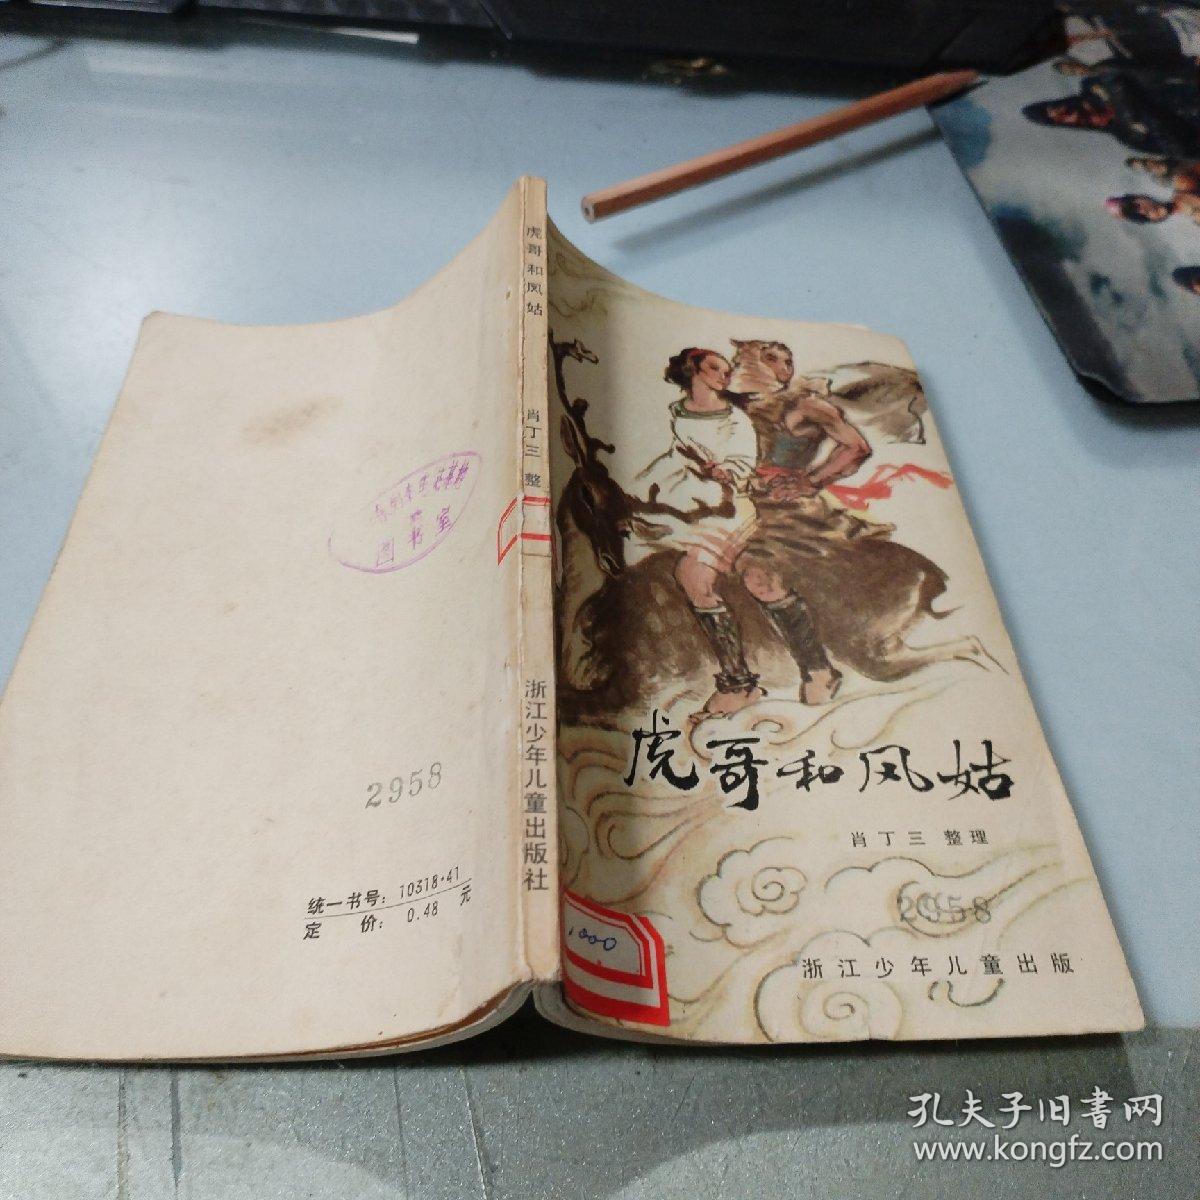 虎哥和凤姑
肖丁三 整
浙江少年儿童出版社
图书室
2958
统一书号：10318·41
定 价： 0.48 元
虎哥和风姑
肖丁三 整理
2958
浙江少年儿童出版
1000
孔夫子旧書网
www.kongfz.com